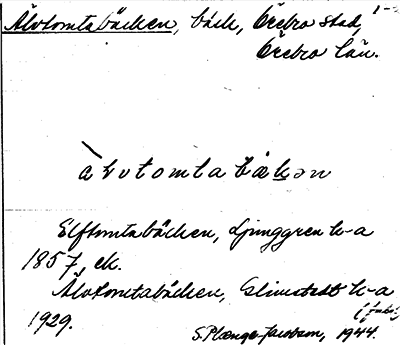 Älvtomtabäcken, bäck, Örebro stad,
Örebro län.
àlvtomtabäkən
Elftomtabäcken, Ljunggren k-a
1857, ek.
Älvtomtabäcken, Glimstedt k-a
1929.
S. Plænge-Jacobson, 1944.